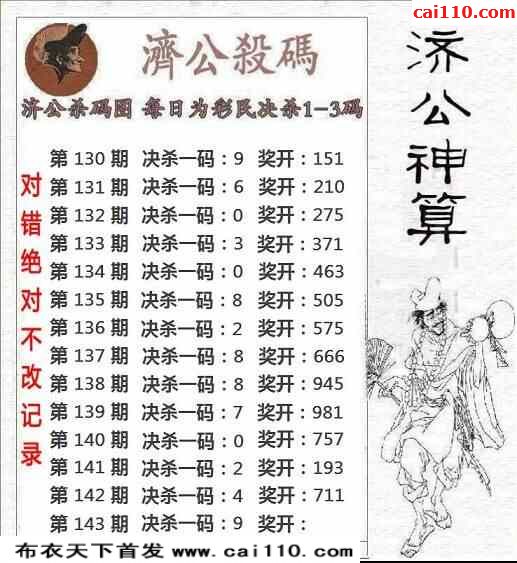 cai110.com
濟公殺碼
济公杀码图 每日为彩民决杀1-3码
济公神算
对错绝对不改记录
第 130 期 决杀一码：9 奖开：151
第 131 期 决杀一码：6 奖开：210
第 132 期 决杀一码：0 奖开：275
第 133 期 决杀一码：3 奖开：371
第 134 期 决杀一码：0 奖开：463
第 135 期 决杀一码：8 奖开：505
第 136 期 决杀一码：2 奖开：575
第 137 期 决杀一码：8 奖开：666
第 138 期 决杀一码：8 奖开：945
第 139 期 决杀一码：7 奖开：981
第 140 期 决杀一码：0 奖开：757
第 141 期 决杀一码：2 奖开：193
第 142 期 决杀一码：4 奖开：711
第 143 期 决杀一码：9 奖开：
布衣天下首发 www.cai110.com